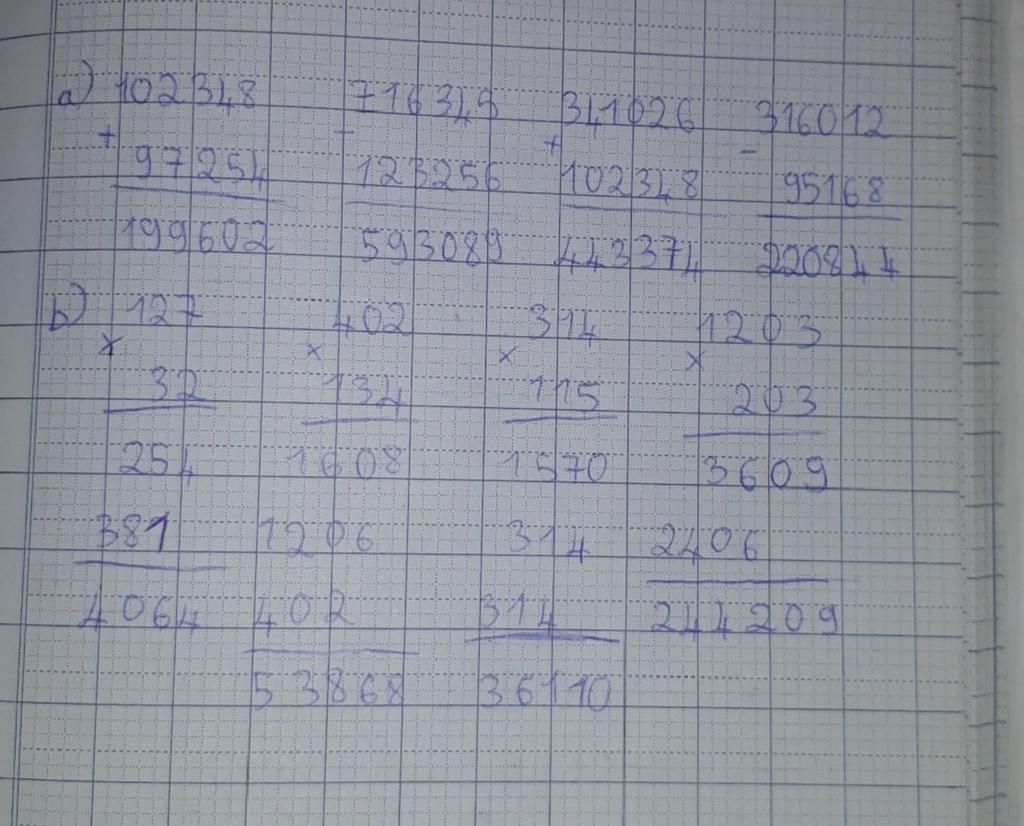 a) 102348 716345 341026 316012
+ - + -
97254 123256 102348 95168
199602 593089 443374 220844
b) 127 402 314 1203
× × × ×
32 134 115 203
254 1608 1570 3609
381 1206 314 2406
4064 402 314 244209
53868 36110